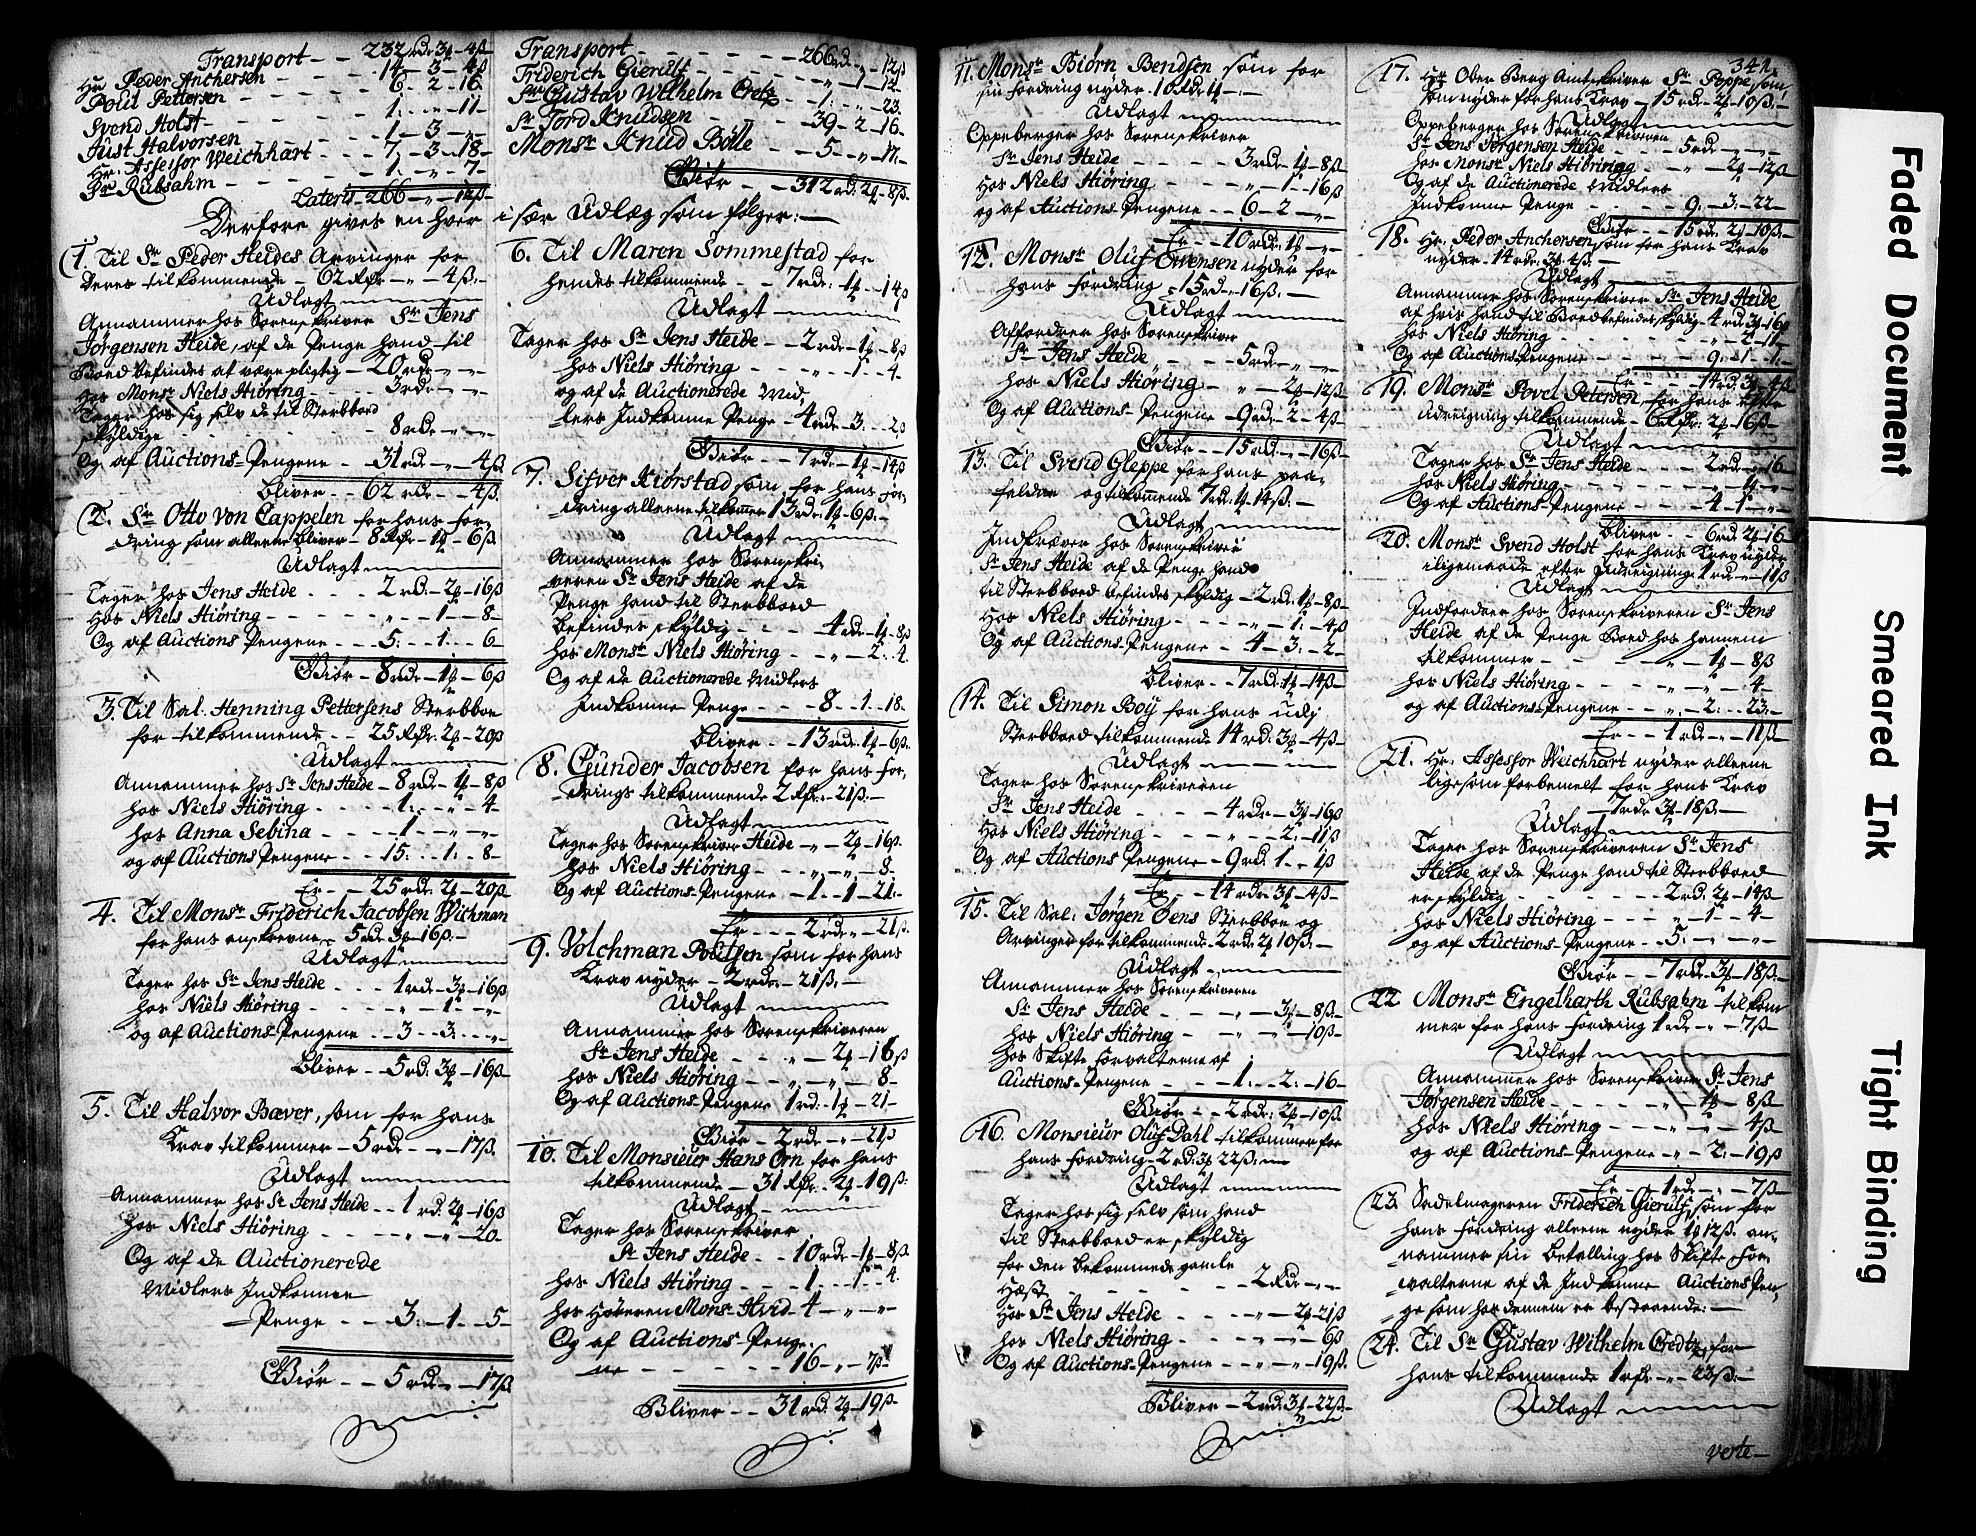 Transport - - 232 rd. 3 4ß
Hr Peder Anchersen - - - 14 - 3 - 4ß
Poul Pettersen - - - 6 - 2 - 16
Svend Holst - - - 1 - " - 11
Just Halvorsen - - - 1 - 3 - "
Hr. Assessor Weichhart - - 7 - 3 - 18
Rubsahm - - - 1 - " - 7
Lateris 266 - " - 12ß
Transport - - - 266 rd - " - 12ß
Friderich Gierulf - - - " - 1 - 12
Sr Gustav Wilhelm - - 1 - " - 23
Sr Tord Knudsen - - 39 - 2 - 16
Monsr Knud Bølle - - - 5 - " - 17
Giør - - 312 rd. 2 - 8ß
Derfore gives en hver i sær Udlæg som følger:
1. Til Sr Peder Heides Arvinger for
Deres tilkommende - 62 - " - 4ß
Udlagt
Annammer hos Sorenskriver Sr Jens
Jørgensen Heide, af de Penge hand til
Boed befindes at være pligtig - 20 rd - " -
hos Monsr Niels Hiøring - 3 rd - " -
Tager hos sig selv de til Sterbboed
skyldige - - - 8 rd - " -
Og af Auctions-Pengene - - 31 rd - " - 4ß
bliver - - 62 rd - - 4ß
2. Sr Otto von Cappelen for hans for-
dring som allerene bliver - 8 - 1 - 6ß
Udlagt
Tager hos Jens Heide - - - 2 rd - 2 - 16ß
Hos Niels Hiøring - - " - 1 - 8
Og af Auctions Pengene - - 5 - 1 - 6
Giør - 8 rd - 1 - 6ß
3. Til Sal. Henning Pettersens Sterbboe
for tilkommende - - 25 2 - 20ß
Udlagt
Annammer hos Sr Jens Heide - 8 rd - 1 - 8ß
hos Niels Hiøring - - - 1 - " - 4
hos Anna Sebina - - - 1 - " - "
og af Auctions Pengene - - 15 - 1 - 8
Er - - 25 rd. 2 - 20ß
4. Til Monsr Friderich Jacobsen Wichman
for hans - 5 rd. 3 - 16ß
Udlagt
Tager hos Sr Jens Heide - - - 1 rd - 3 - 16ß
hos Niels Hiøring - - " - 1 - "
og af Auctions-Pengene - - 3 - 3 - "
bliver - - 5 rd. 3 - 16ß
5. Til Halvor Bæver, som for hans
Krav tilkommer - 5 rd - " - 17ß
Udlagt
Annammer hos Sr Jens Heide - - 1 rd. 2 - 16ß
hos Niels Hiøring - - - " - " - 20
Og af de Auctionerede
Midlers Indkomne
Penge - - 3 - 1 - 5
Giør - - 5 rd - " - 17ß
6. Til Maren Sommestad for
hendes tilkommende - - 7 rd. 1 - 14ß
Udlagt
Tager hos Sr Jens Heide - - 2 rd - 1 - 8ß
hos Niels Hiøring - - " - 1 - 4
og af de Auctionerede Mid-
lers Indkomne Penge - 4 rd - 3 - 2ß
Giør - - 7 rd - 1 - 14ß
7. Sifver Kiørstad som for hans for-
dring allerene tilkommer 13 rd. 1 - 6ß
Udlagt
Annammer hos Sorenskri-
veren Sr Jens Heide af de
Penge hand til Sterbboed
befindes skyldig - - - 4 rd - 1 - 8ß
hos Monsr Niels Hiøring - - " - 2 - 4
Og af de Auctionerede Midlers
Indkomne Penge - - 8 - 1 - 18
bliver - - 13 rd. 1 - 6ß
8. Gunder Jacobsen for hans for-
drings tilkommende 2 - 21ß
Udlagt
Tager hos Sorenskriver Heide - " - 2 - 16ß
hos Niels Hiøring - - " - " - 8
Og af Auctions-Pengene - - 1 - 1 - 21
Er - - 2 rd - " - 21ß
9. Volchman Poulsen som for hans
Krav nyder - 2 rd - 21ß
Udlagt
Annammer hos Sorenskriveren
Sr Jens Heide - - " - 2 - 16ß
hos Niels Hiøring - - " - " - 8
Og af Auctions-Pengene 1 rd - 1 - 21
Giør - 2 rd - " - 21ß
10. Til Monsieur Hans Orn for hans
tilkommende - 31 - 2 - 19ß
Udlagt
Tager hos Sorenskriver
Sr Jens Heide - - 10 rd - 1 - 8ß
hos Niels Hiøring - - - 1 - 1 - 4
hos Monsr Hvid 4 - " - "
Og af Auctions-Penge-
ne - - - 16 - " - 7ß
Bliver - - 31 rd. 2 - 19ß
341.
11. Monsr Biørn Bendsen som for
sin fordring nyder - 10 rd. 1
Udlagt
Oppeberger hos Sorenskriver
Sr Jens Heide - - - 3 rd. 1 - 8ß
Hos Niels Hiøring - - - " - 1 - 16ß
og af Auctions Pengene - - 6 - 2 - "
Er - - 10 rd. 1 - "
12. Monsr Oluf Ewensen nyder for
hans fordring - 15 rd - " - 16ß
Udlagt
Affordrer hos Sorenskriver
Sr Jens Heide - - - 5 rd - " - "
hos Niels Hiøring - - " - 2 - 12ß
Og af Auctions-Pengene - 9 rd - 2 - 4ß
Giør - - 15 rd - " - 16ß
13. Til Svend Gleppe for hans paa-
feldne og tilkommende 7 rd. 1 - 14ß
Udlagt
Indkræver hos Sorenskriver
Sr Jens Heide af de Penge hand
til Sterbboed befindes skyldig - 2 rd. 1 - 8ß
Hos Niels Hiøring - - - " - 1 - 4ß
Og af Auctions-Pengene - 4 - 3 - 2
bliver - - 7 rd. 1 - 14ß
14. Til Simon Boÿ for hans udi
Sterbboed tilkommende 14 rd. 3 - 4ß
Udlagt
Tager hos Sorenskriveren
Sr Jens Heide - - - 4 rd - 3 - 16ß
Hos Niels Hiøring - - " - 2 - 11ß
Og af Auctions Pengene - 9 rd. 1 - 1ß
Er - - 14 rd. 3 - 4ß
15. Til Sal: Jørgen Oens Sterbboe og
Arvinger for tilkommende 2 rd. 2 10ß
Udlagt
Annammer hos Sorenskriveren
Sr Jens Heide - - " - 3 - 8ß
hos Niels Hiøring - " - " - 10ß
hos Skifte forvalterne af
Auctions-Pengene - - - 1 - 2 - 16
Giør - - 2 rd. 2 - 10ß
16. Monsieur Oluf Dahl tilkommer for
hans fordring - 2 rd. 3 22ß
Udlagt
Tager hos sig selv som hand
til Sterbboed er skyldig
for den bekommede gamle
Hæst - - - 2 rd - "
Hos Sr Jens Heide - - - " - 2 - 21ß
hos Niels Hiøring - - - " - " - 6ß
Og af Auctions-Pengene - - " - " - 19ß
Bliver - 2 rd. 3 - 22ß
17. Hr Ober Berg Amtskriver Sr Poppe som
som nyder for hans Krav - 15 rd. 2 - 10ß
Udlagt
Oppeberger hos Sorenskriveren
Sr Jens Jørgensen Heide - - 5 rd - " - "
hos Monsr Niels Hiöring - " - 2 - 12ß
Og af de Auctionerede Midlers
Indkomne Penge - - - 9 - 3 - 22
Giør - 15 rd. 2 - 10ß
18. Hr. Peder Anchersen som for hans Krav
nyder 14 rd. 3 4ß
Udlagt
Annammer hos Sorenskriver Sr Jens Heide
af hvis hand til Boed befindes skyldig - 4 rd. 3 - 16ß
hos Niels Hiøring - - - " - 2 - 11
Og af Auctions-Pengene - - - 9 - 1 - 1
Er - - 14 rd. 3 - 4ß
19. Monsr Povel Petersen for hans
udreigning tilkommende - 6 2 - 16ß
Udlagt
Tager hos Sr Jens Heide - - - 2 rd - " - 16
hos Niels Hiøring - - - " - 1 - "
Og af Auctions-Pengene - - 4 - 1 - "
bliver - - 6 rd 2 - 16
20. Monsr Svend Holst for hans Krav nyder
iligemaade efter Udreigning 1 rd - " - 11ß
Udlagt
Indfordrer hos Sorenskriveren Sr Jens
Heide af de Penge Boed hos hannem
tilkommer - - - " - 1 - 8ß
hos Niels Hiøring - - - " - " - 4
og af Auctions-Pengene - - " - 2 - 23
Er - - 1 rd - " - 11ß
21. Hr. Assessor Weichhart nyder allerene
ligesom forbemelt for hans Krav
7 rd. 3 18ß
Udlagt
Tager hos Sorenskriveren Sr Jens
Heide af de Penge hand til Sterbboed
er skyldig - - - 2 rd. 2 - 14ß
hos Niels Hiøring - - - " - 1 - 4
og af Auctions-Pengene - - 5 - " - "
Giør - - 7 rd. 3 - 18ß
22. Monsr Engelharth Rubsahm tilkom-
mer for hans fordring 1 rd - " - 7ß
Udlagt
Annammer hos Sorenskriver Sr Jens
Jørgensen Heide - - - " - 1 - 8ß
hos Niels Hiøring - - " - " - 4ß
og af Auctions-Pengene - " - 2 - 19ß
Er - - 1 rd - " - 7ß
23. Sadelmageren Friderich Gierulf, som for
hans fordring allerene nyder 1 12ß an-
nammer sin betalling hos Skifte for-
valterne af de Indkomne Auctions Pen-
ge som hos dennem er beroende:
24. Til Sr Gustav Wilhelm for
hans tilkommende 1 - " - 23ß
Udlagt
verte
Faded Document
Smeared Ink
Tight Binding